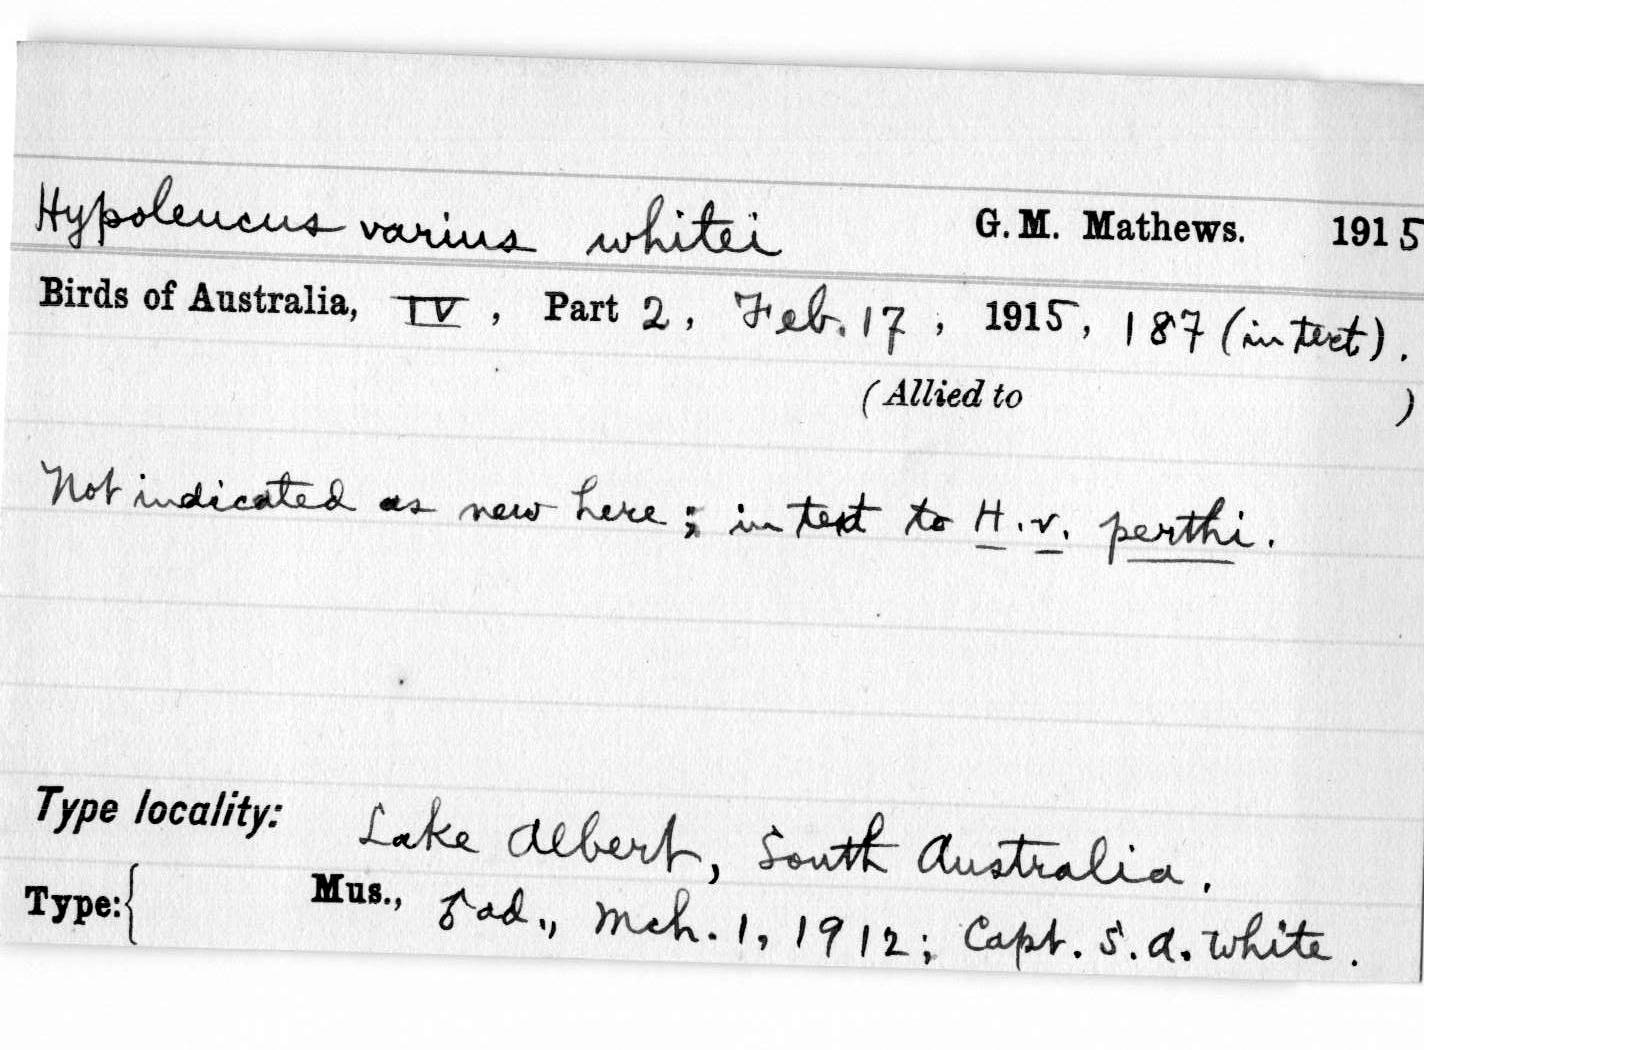 Hypoleucus varius whitei G. M. Mathews. 1915
Birds of Australia, IV, Part 2, Feb. 17, 1915, 187 (in text).
(Allied to )
Not indicated as new here; in text to H. v. perthi.
Type locality: Lake Albert, South Australia.
Type:{ Mus., ♂ ad., Mch. 1, 1912; Capt. S. A. White.